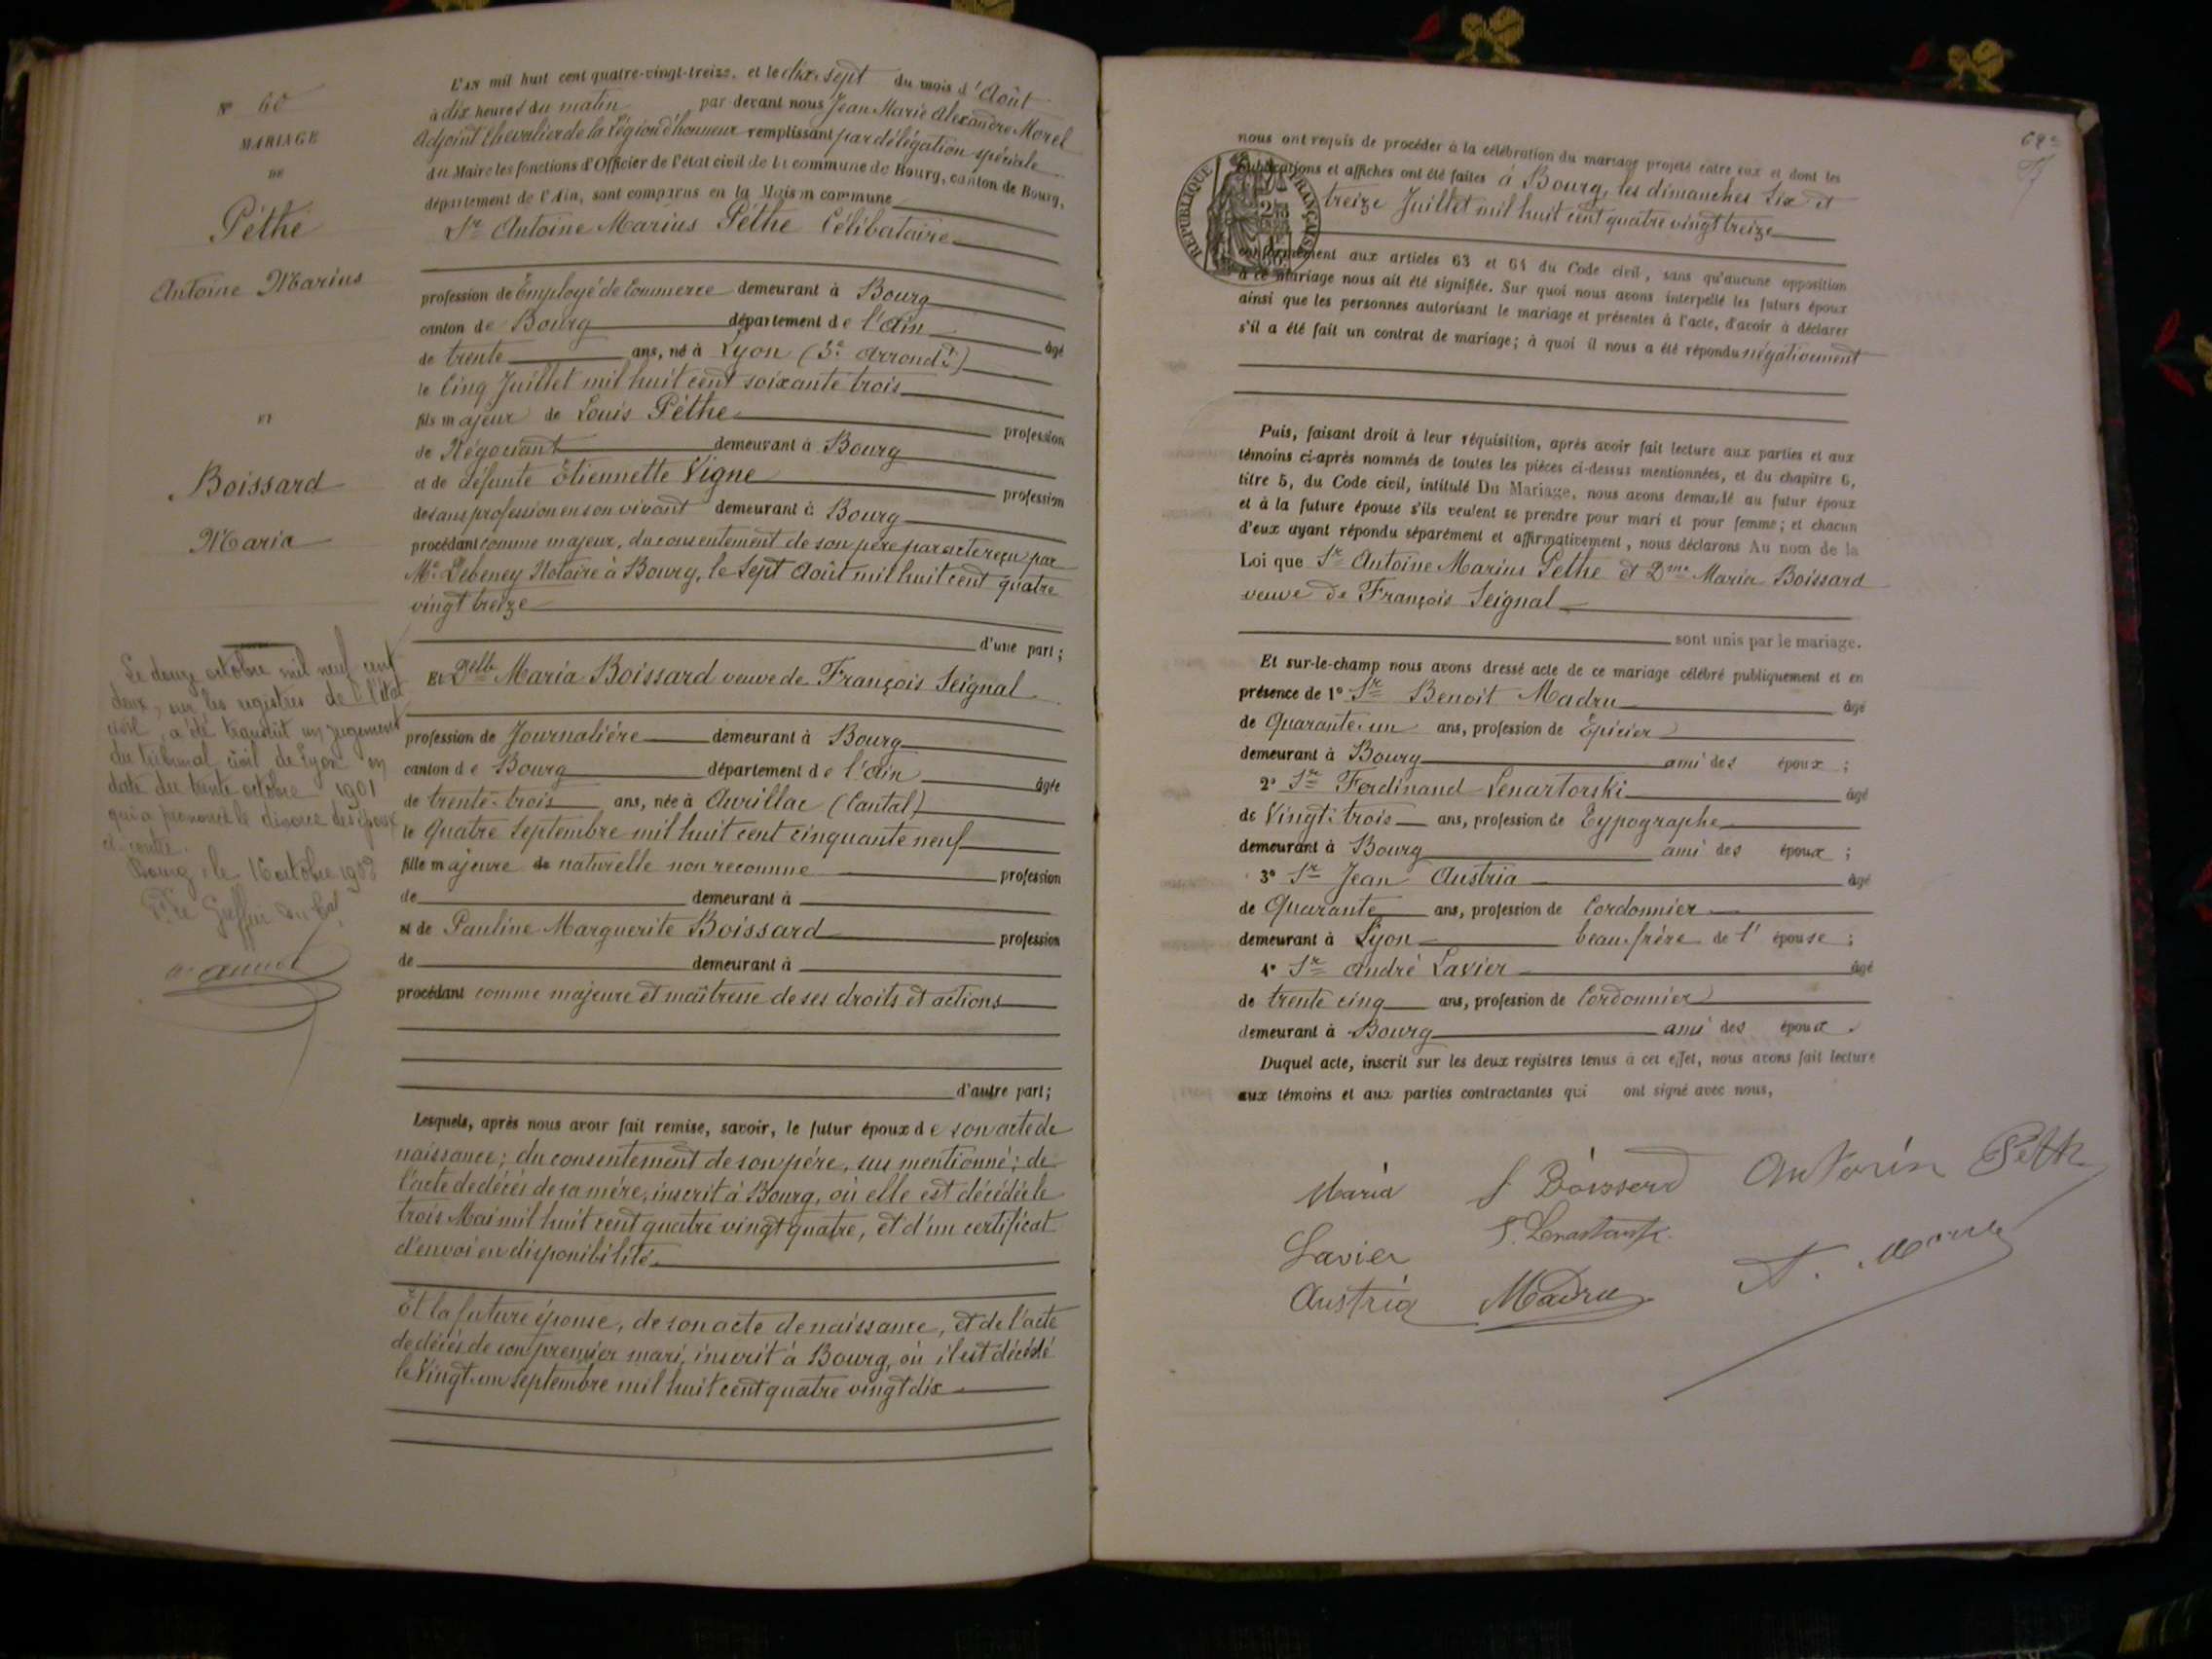 N° 60
MARIAGE
DE
Péthe
Antoine Marius
ET
Boissard
Maria
Le douze octobre mil neuf cent
deux, sur les registres de l'état
civil, a été transcrit un jugement
du tribunal civil de Lyon en
date du trente octobre 1901
qui a prononcé le divorce des époux
ci-contre.
Bourg, le 16 octobre 1902
L'AN mil huit cent quatre-vingt-treize, et le dix-sept du mois d'Août
à dix heures du matin par devant nous Jean Marie Alexandre Morel
Adjoint Chevalier de la Légion d'honneur remplissant par délégation spéciale
du Maire les fonctions d'Officier de l'état civil de la commune de Bourg, canton de Bourg,
département de l'Ain, sont comparus en la Maison commune
Sr Antoine Marius Péthe Célibataire
profession de Employé de Commerce demeurant à Bourg
canton de Bourg département de l'Ain âgé
de trente ans, né à Lyon (5e Arrondt)
le Cinq Juillet mil huit cent soixante trois
fils majeur de Louis Péthe profession
de Négociant demeurant à Bourg
et de défunte Etiennette Vigne profession
de sans profession en son vivant demeurant à Bourg
procédant comme majeur, du consentement de son père par acte reçu par
Me Debeney Notaire à Bourg, le sept Août mil huit cent quatre
vingt treize
d'une part;
Et Delle Maria Boissard veuve de François Seignal
profession de Journalière demeurant à Bourg
canton de Bourg département de l'Ain âgée
de trente-trois ans, née à Aurillac (Cantal)
le Quatre Septembre mil huit cent cinquante neuf
fille majeure de naturelle non reconnue profession
de demeurant à
et de Pauline Marguerite Boissard profession
de demeurant à
procédant comme majeure et maîtresse de ses droits et actions
d'autre part;
Lesquels, après nous avoir fait remise, savoir, le futur époux de son acte de
naissance; du consentement de son père, sus mentionné; de
l'acte de décès de sa mère, inscrit à Bourg, où elle est décédée le
trois Mai mil huit cent quatre vingt quatre, et d'un certificat
d'envoi en disponibilité.
Et la future épouse, de son acte de naissance, et de l'acte
de décès de son premier mari, inscrit à Bourg, où il est décédé
le Vingt-un Septembre mil huit cent quatre vingt dix
nous ont requis de procéder à la célébration du mariage projeté entre eux et dont les
publications et affiches ont été faites à Bourg, les dimanches Six et
treize Juillet mil huit cent quatre vingt treize
RÉPUBLIQUE FRANÇAISE
conformément aux articles 63 et 64 du Code civil, sans qu'aucune opposition
à ce mariage nous ait été signifiée. Sur quoi nous avons interpellé les futurs époux
ainsi que les personnes autorisant le mariage et présentes à l'acte, d'avoir à déclarer
s'il a été fait un contrat de mariage; à quoi il nous a été répondu négativement
Puis, faisant droit à leur réquisition, après avoir fait lecture aux parties et aux
témoins ci-après nommés de toutes les pièces ci-dessus mentionnées, et du chapitre 6,
titre 5, du Code civil, intitulé Du Mariage, nous avons demandé au futur époux
et à la future épouse s'ils veulent se prendre pour mari et pour femme; et chacun
d'eux ayant répondu séparément et affirmativement, nous déclarons Au nom de la
Loi que Sr Antoine Marius Péthe et Dme Maria Boissard
veuve de François Seignal
sont unis par le mariage.
Et sur-le-champ nous avons dressé acte de ce mariage célébré publiquement et en
présence de 1° Sr Benoit Madru âgé
de Quarante-un ans, profession de Epicier
demeurant à Bourg ami des époux;
2° Sr Ferdinand Lenartorski âgé
de Vingt-trois ans, profession de Typographe
demeurant à Bourg ami des époux;
3° Sr Jean Austria âgé
de Quarante ans, profession de Cordonnier
demeurant à Lyon beau-frère de l'épouse;
4° Sr André Lavier âgé
de trente cinq ans, profession de Cordonnier
demeurant à Bourg ami des époux.
Duquel acte, inscrit sur les deux registres tenus à cet effet, nous avons fait lecture
aux témoins et aux parties contractantes qui ont signé avec nous,
Maria Boissard Antonin Peth
Lavier
Austria Madru